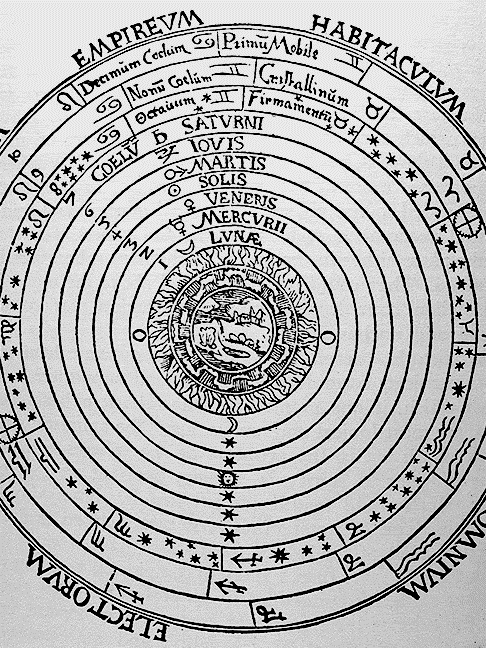 EMPIREVM HABITACVLVM
Decimum Coelum Primũ Mobile
Nonũ Coelum Cristallinum
Octauum Firmamentũ
COELV̄ SATVRNI
IOVIS
MARTIS
SOLIS
VENERIS
MERCVRII
LVNÆ
7
6
5
4
3
2
1
ELECTORVM
OMNIVM